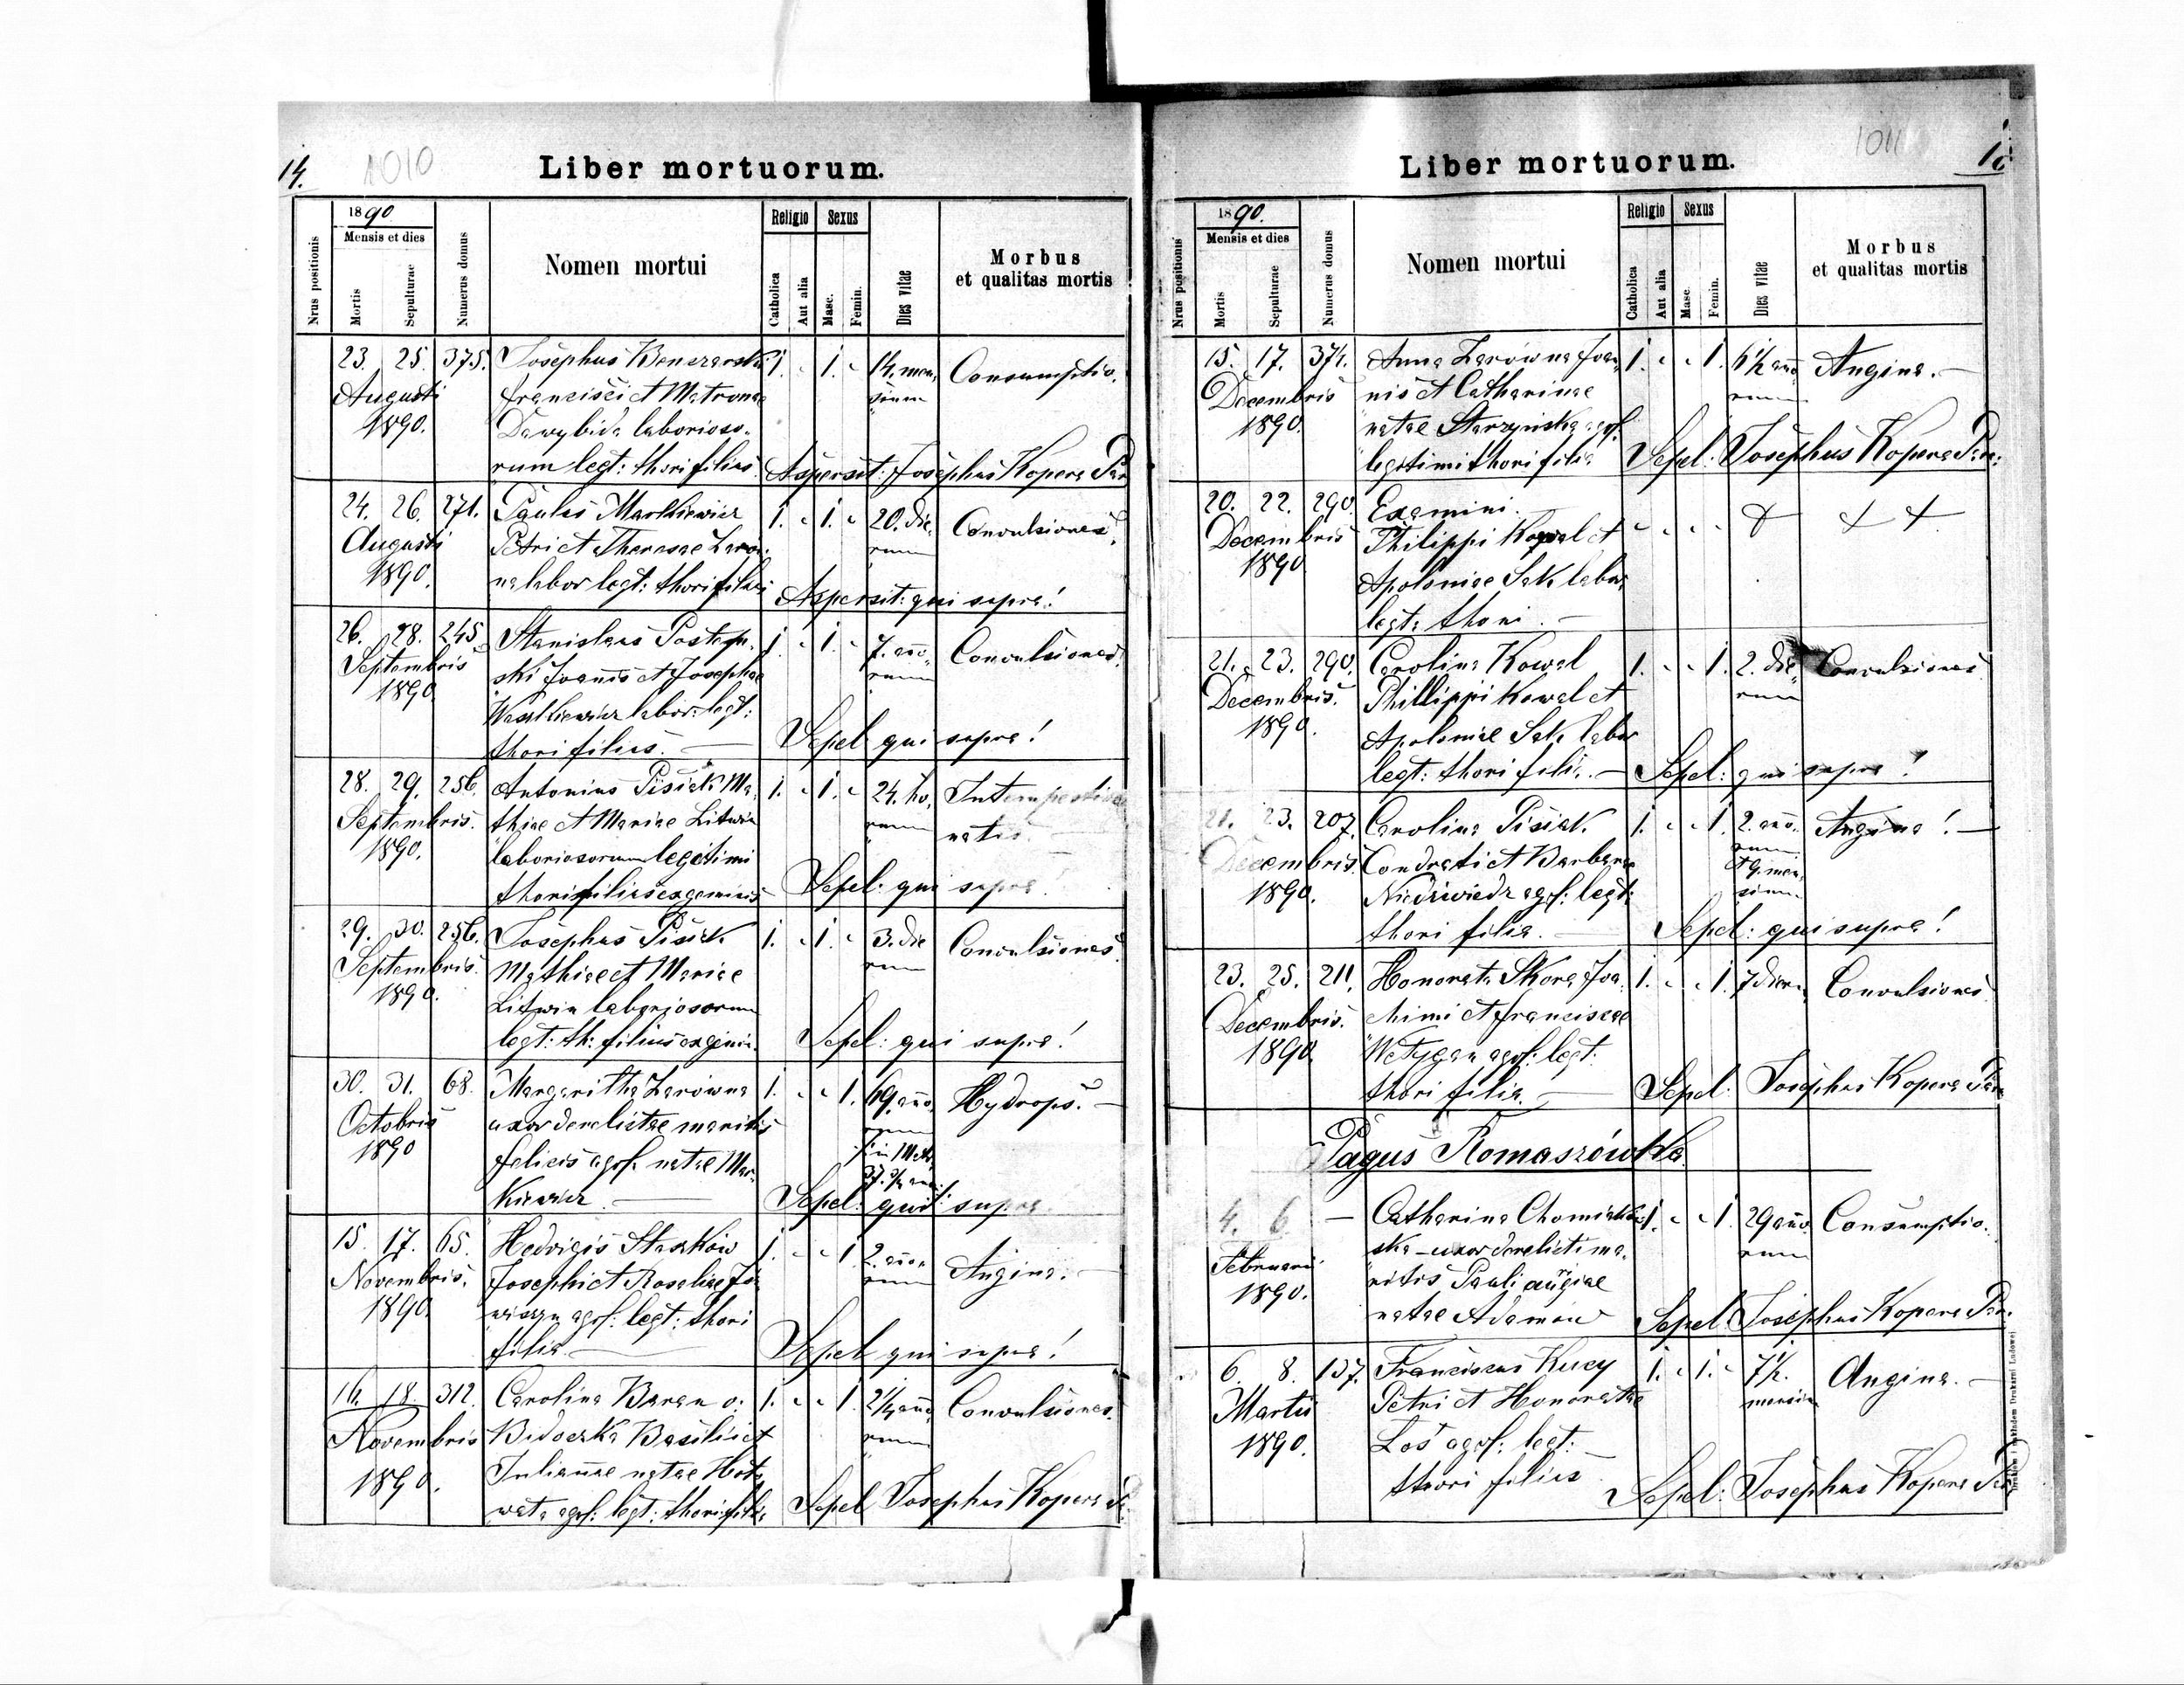 14.
1010
Liber mortuorum.
Nrus positionis
1890
Mensis et dies
Mortis
Sepulturae
Numerus domus
Nomen mortui
Religio
Catholica
Aut alia
Sexus
Masc.
Femin.
Dies vitae
Morbus
et qualitas mortis
23. 25. 375. Josephus 1. 1. 14. men, Consumptio.
Augusti Francisci et Matronae sium
1890. laborioso.
rum legt: thori filius Aspersit: Josephus Kopera
24. 26. 271. Paulus Markiewicz 1. 1. 20. die Convulsiones.
Augusti Petri et Theresae rum
1890. labor legt: thori filius Aspersit: qui supra!
26. 28. 245 Stanislaus 1. 1. 7. ann. Convulsiones.
Septembris ski Joannis et Josephae rum
1890. labor: legt:
thori filius. Sepel qui supra!
28. 29. 256. Antonius Pisiak Ma 1. 1. 24. ho.
Septembris. thiae et Mariae Litwin rum natus
1890. laboriosorum legitimi
thori filius ex geminis Sepel: qui supra!
29. 30. 256. Josephus Pisiak 1. 1. 3. die Convulsiones.
Septembris. Mathiae et Mariae rum
1890. Litwin laboriosorum
legt: th: filius Sepel: qui supra!
30. 31. 68. Margaritha Zarowna 1. 1. 69. ann. Hydrops.
Octobris uxor derelictae maritis rum
1890 Felicis agr. natae Mar
kiewicz Sepel: qui supra
15. 17. 65. Hedvigis Staszków 1. 1 2. ann. Angina.
Novembris. Josephi et Rosaliae rum
1890. agr: legt: thori
filia Sepel qui supra!
16. 18. 312. Carolina Baran 1. 1. 2 1/4 ann. Convulsiones.
Novembris Basilii et rum
1890. Julianae natae
agr: legt: thori filia Sepel Josephus Kopera
1011
Liber mortuorum.
Nrus positionis
1890.
Mensis et dies
Mortis
Sepulturae
Numerus domus
Nomen mortui
Religio
Catholica
Aut alia
Sexus
Masc.
Femin.
Dies vitae
Morbus
et qualitas mortis
15. 17. 374. Anna Zarówna Joan 1. 1. 6 1/2 ann Angina.
Decembris nis et Catharinae rum
1890. natae Starzynska agr.
legitimi thori filia Sepel: Josephus Kopera
20. 22. 290. Exanimi.
Decembris Philippi Kowal et
1890 Apoloniae Sak labor
legt: thori.
21. 23. 290. Carolina Kowal 1. 1. 2. die Convulsiones
Decembris. Phillippi Kowal et rum
1890. Apoloniae Sak labor
legt: thori filia. Sepel: qui supra!
21. 23. 207. Carolina Pisiak 1. 1. 2. ann. Angina!
Decembris. Condrati et Barbarae rum
1890. Niedzwiedz agr: legt: et 9. men
thori filia. sium. Sepel: qui supra!
23. 25. 211. Honorata Skora Joa 1. 1. 7 dier. Convulsiones
Decembris. chimi et Franciscae
1890 agr: legt:
thori filia. Sepel: Josephus Kopera
Pagus Romaszówka.
4. 6 — Catharina 1. 1. 29 ann. Consumptio.
Februarii ska uxor derelicti ma. rum
1890. ritis Pauli
natae Adamów Sepel: Josephus Kopera
6. 8. 137. Franciscus Kucy 1. 1. 7 1/2. Angina.
Martii Petri et Honoratae mensiu
1890. Łoś agr: legt:
thori filius Sepel: Josephus Kopera